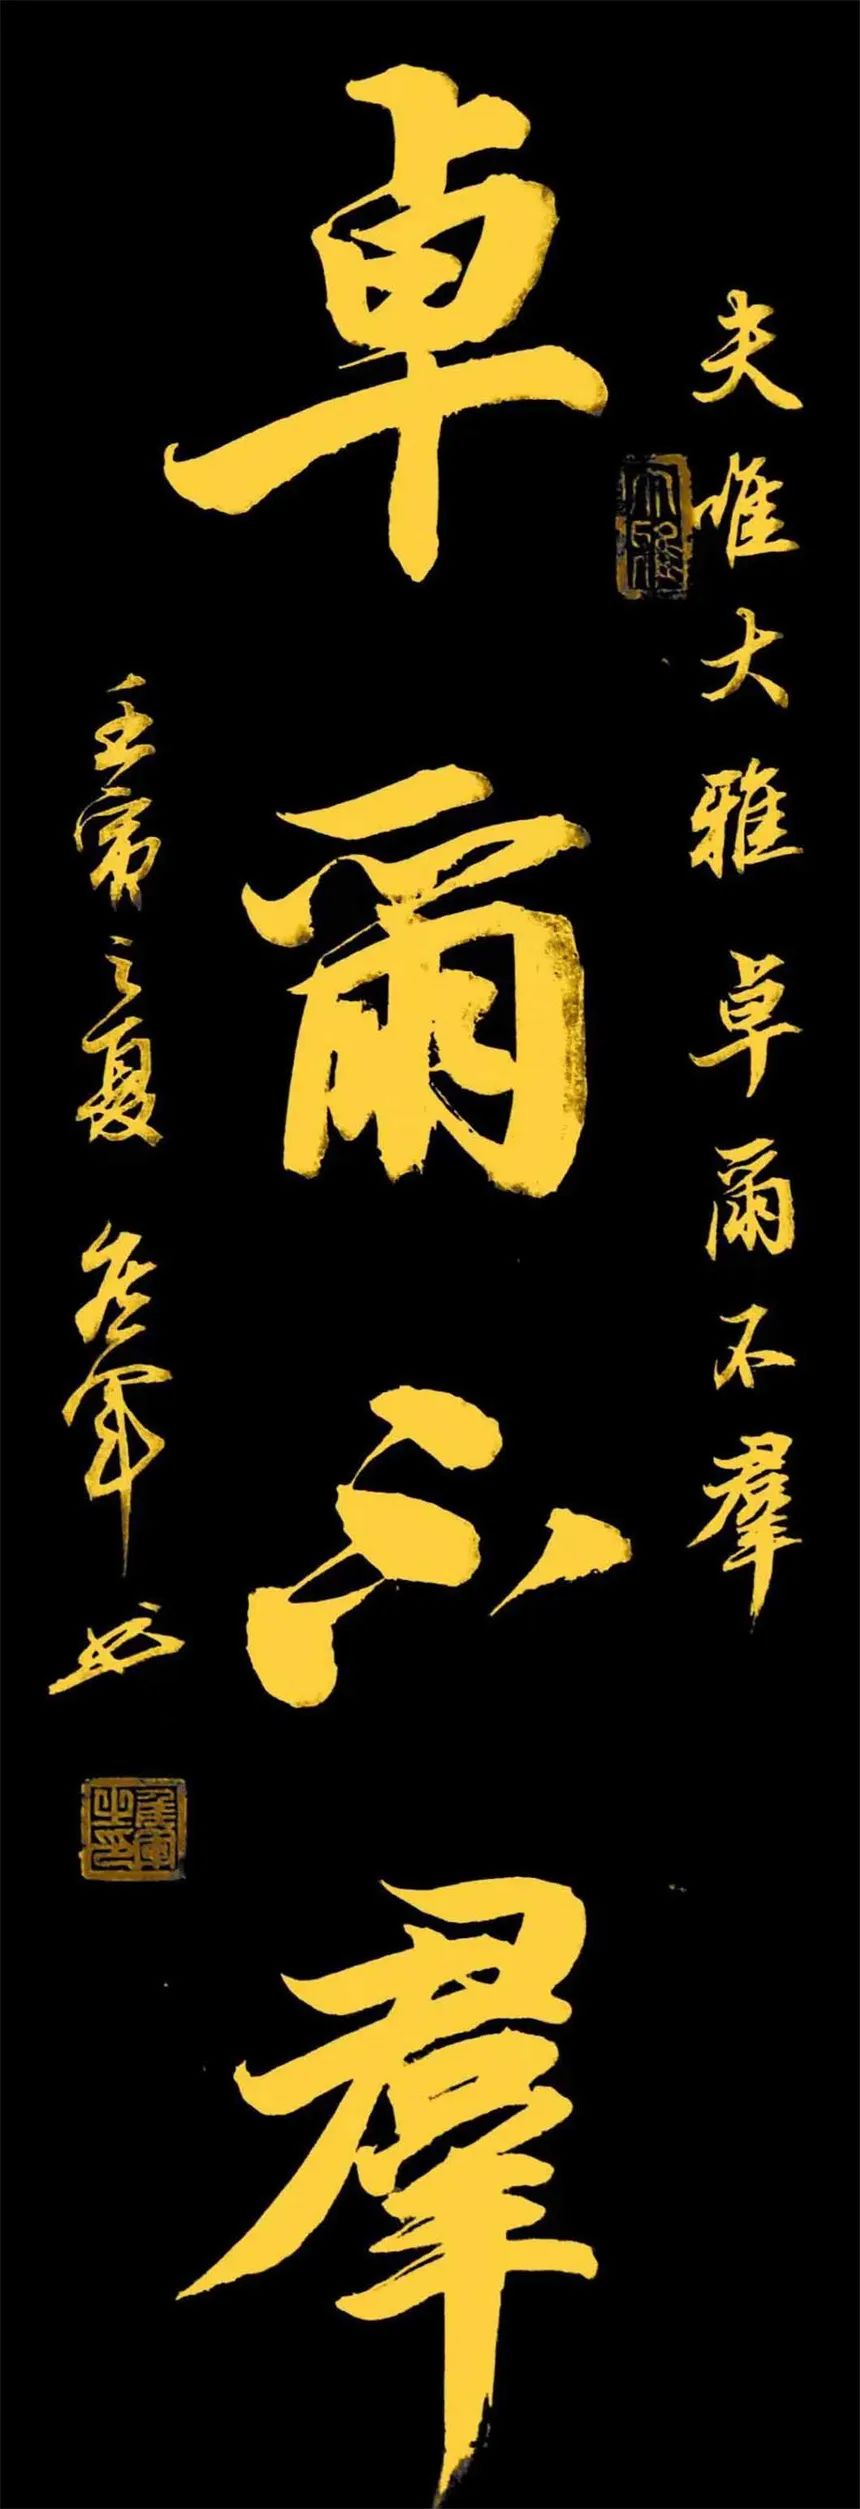 夫唯大雅卓爾不羣
卓爾不羣
壬寅之夏 軍书